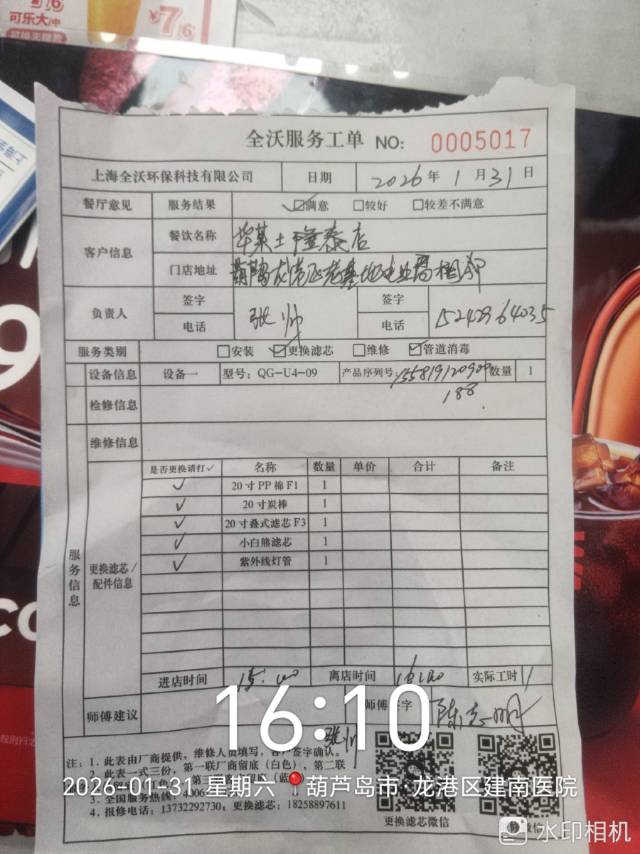 可乐大/中
¥7/6
全沃服务工单 NO: 0005017
上海全沃环保科技有限公司 日期 2026年 1月31日
餐厅意见 服务结果 ☑满意 □较好 □较差不满意
客户信息 餐饮名称 华莱士隆泰店
门店地址
负责人 签字 张帅 签字
电话 电话 15242964035
服务类别 □安装 ☑更换滤芯 □维修 ☑管道消毒
设备信息 设备一 型号: QG-U4-09 产品序列号: 数量 1
188
检修信息
维修信息
服务信息
更换滤芯/配件信息
是否更换请打✓ 名称 数量 单价 合计 备注
✓ 20寸PP棉F1 1
✓ 20寸炭棒 1
✓ 20寸叠式滤芯F3 1
✓ 小白熊滤芯 1
✓ 紫外线灯管 1
进店时间 15:00 离店时间 16:00 实际工时 1
师傅建议 师傅 字
16:10
张帅
注: 1. 此表由厂商提供, 维修人员填写, 客户签字确认。
2. 此表一式三份, 第一联厂商留底(白色), 第二联
2026-01-31 星期六 葫芦岛市·龙港区建南医院
3. 全国服务热线: 4006
4. 报修电话: 13732292730, 更换滤芯: 18258897611
更换滤芯微信
水印相机